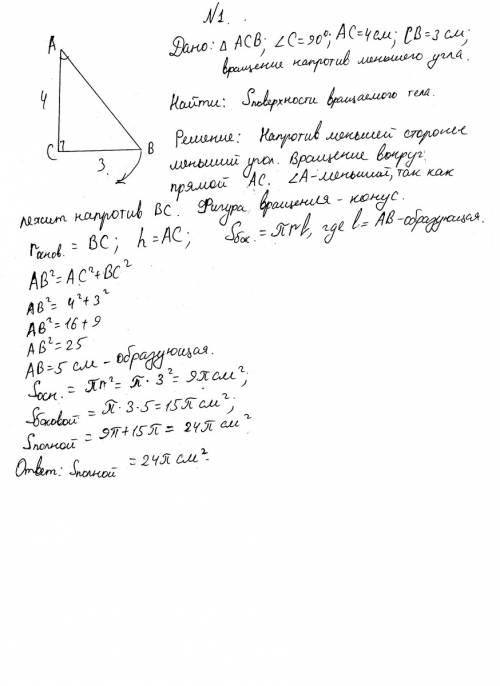 N1.
A
4
C
3.
B
Дано: △ ACB; ∠C=90°; AC=4см; CB=3см;
вращение напротив меньшего угла.
Найти: Sповерхности вращаемого тела.
Решение: Напротив меньшей стороны
меньший угол. Вращение вокруг
прямой AC. ∠A-меньший, так как
лежит напротив BC. Фигура вращения - конус.
rоснов. = BC; h=AC; Sбок. = πrl, где l=AB-образующая.
AB²=AC²+BC²
AB²= 4²+3²
AB²=16+9
AB²=25
AB=5 см - образующая.
Sосн. = πr²= π·3²= 9π см²;
Sбоковой = π·3·5=15π см²;
Sполной = 9π+15π= 24π см²
Ответ: Sполной = 24π см²